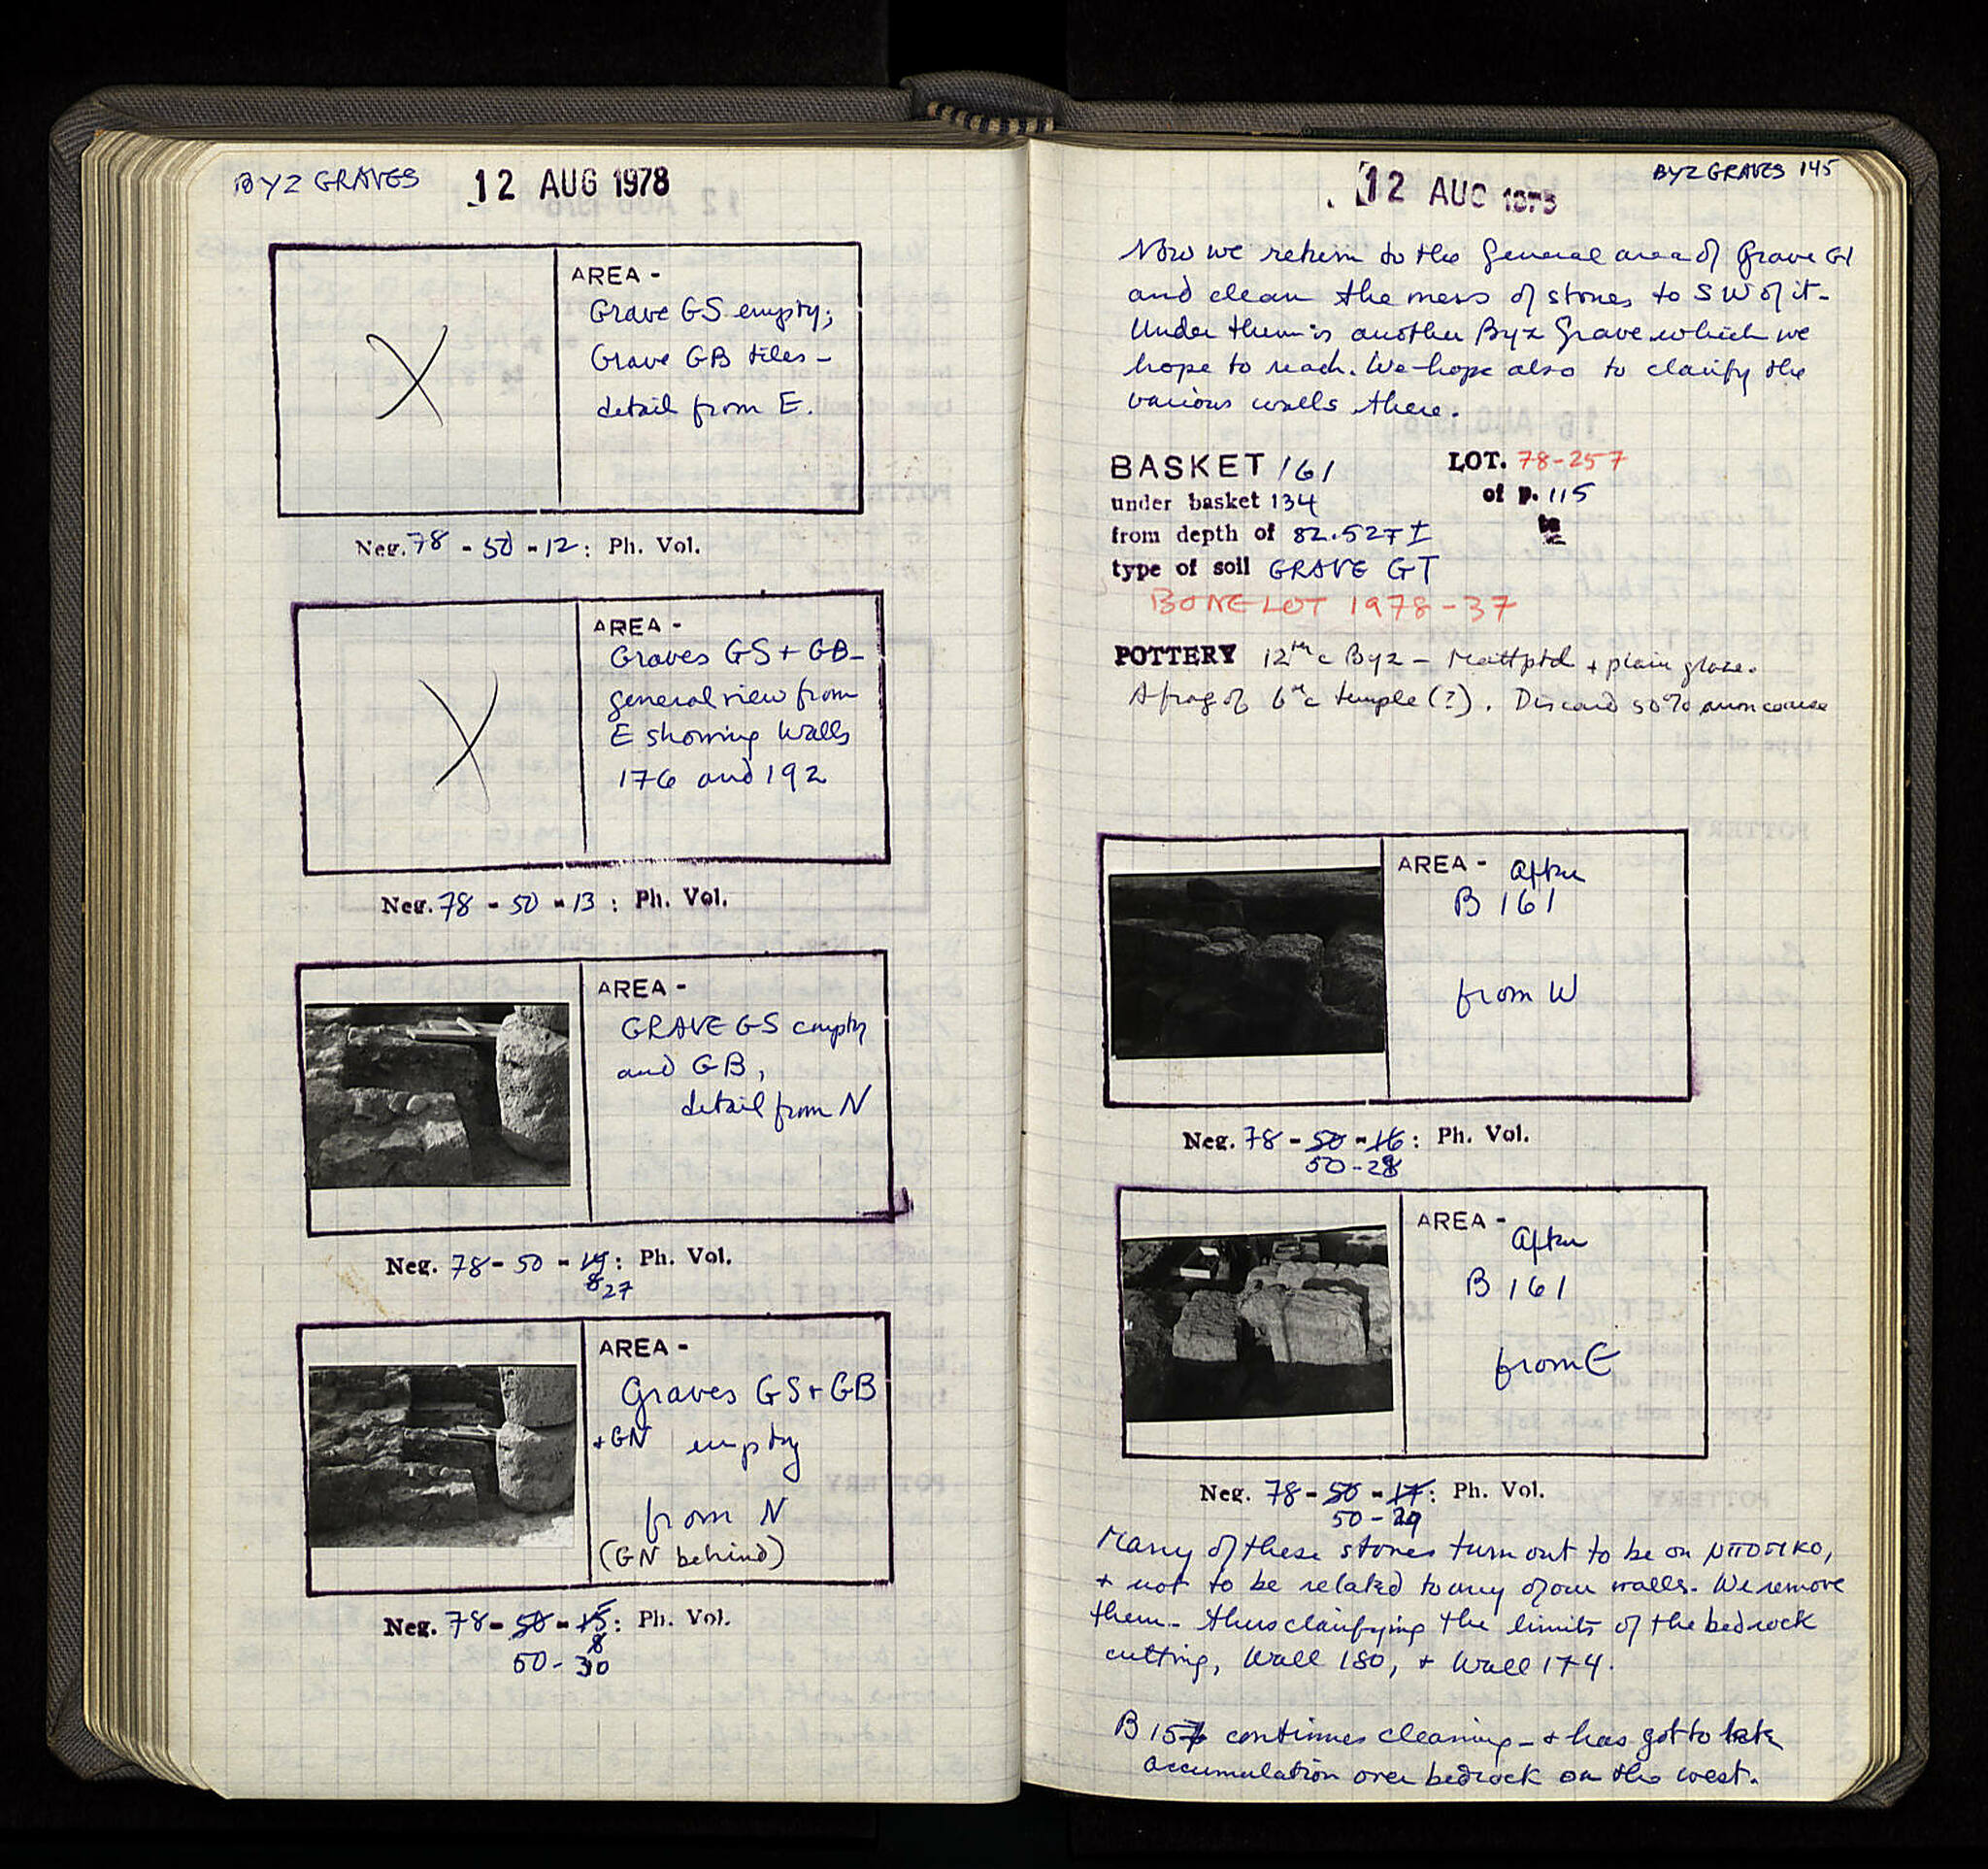 BYZ GRAVES 12 AUG 1978
AREA -
Grave GS empty;
Grave GB tiles -
detail from E.
Neg. 78 - 50 - 12 : Ph. Vol.
AREA -
Graves GS + GB -
general view from
E showing Walls
176 and 192
Neg. 78 - 50 - 13 : Ph. Vol.
AREA -
GRAVE GS empty
and GB,
detail from N
Neg. 78 - 50 - : Ph. Vol.
27
AREA -
Graves GS + GB
+ GN empty
from N
(GN behind)
Neg. 78 - 50 - 15 : Ph. Vol.
50 - 30
12 AUG 1978 BYZ GRAVES 145
Now we return to the general area of Grave GI
and clean the mess of stones to SW of it -
Under them is another Byz Grave which we
hope to reach. We hope also to clarify the
various walls there.
BASKET 161 LOT. 78-257
under basket 134 of p. 115
from depth of 82.527 ±
type of soil GRAVE GT
BONE LOT 1978-37
POTTERY 12th c Byz - Mattptd + plain glaze.
A frag of 6th c temple (?). Discard 50% coarse
AREA - After
B 161
from W
Neg. 78 - 50 - 16 : Ph. Vol.
50 - 28
AREA - After
B 161
from E
Neg. 78 - 50 - 17 : Ph. Vol.
50 - 29
Many of these stones turn out to be on
+ not to be related to any of our walls. We remove
them - thus clarifying the limits of the bedrock
cutting, Wall 180, + Wall 174.
B 157 continues cleaning - + has got to late
accumulation over bedrock on the west.